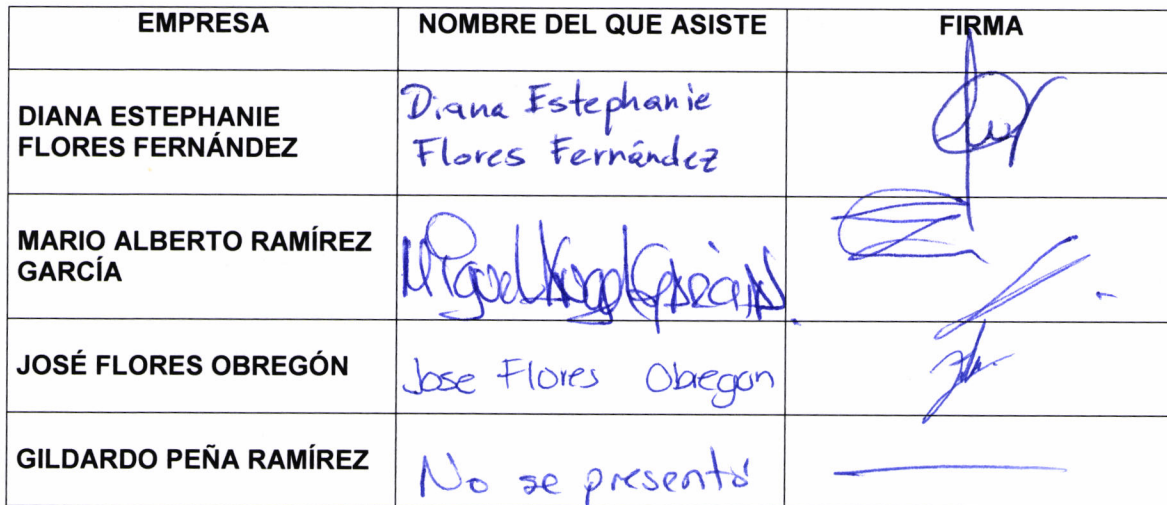 EMPRESA NOMBRE DEL QUE ASISTE FIRMA
DIANA ESTEPHANIE
FLORES FERNÁNDEZ
Diana Estephanie
Flores Fernández
MARIO ALBERTO RAMÍREZ
GARCÍA
Miguel Angel García N.
JOSÉ FLORES OBREGÓN
Jose Flores Obregon
GILDARDO PEÑA RAMÍREZ
No se presentó